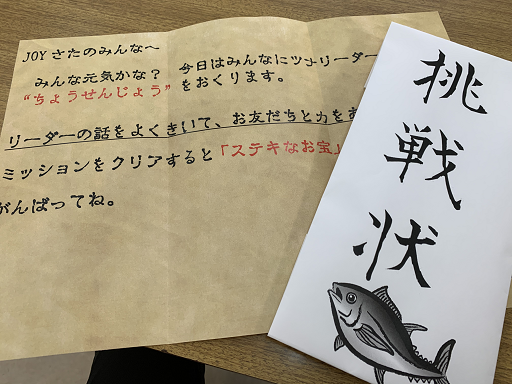 JOY さたのみんなへ
みんな元気かな？ 今日はみんなにツナリーダー
“ちょうせんじょう” をおくります。
リーダーの話をよくきいて、お友だちと力を
ミッションをクリアすると「ステキなお宝」
がんばってね。
挑戦状